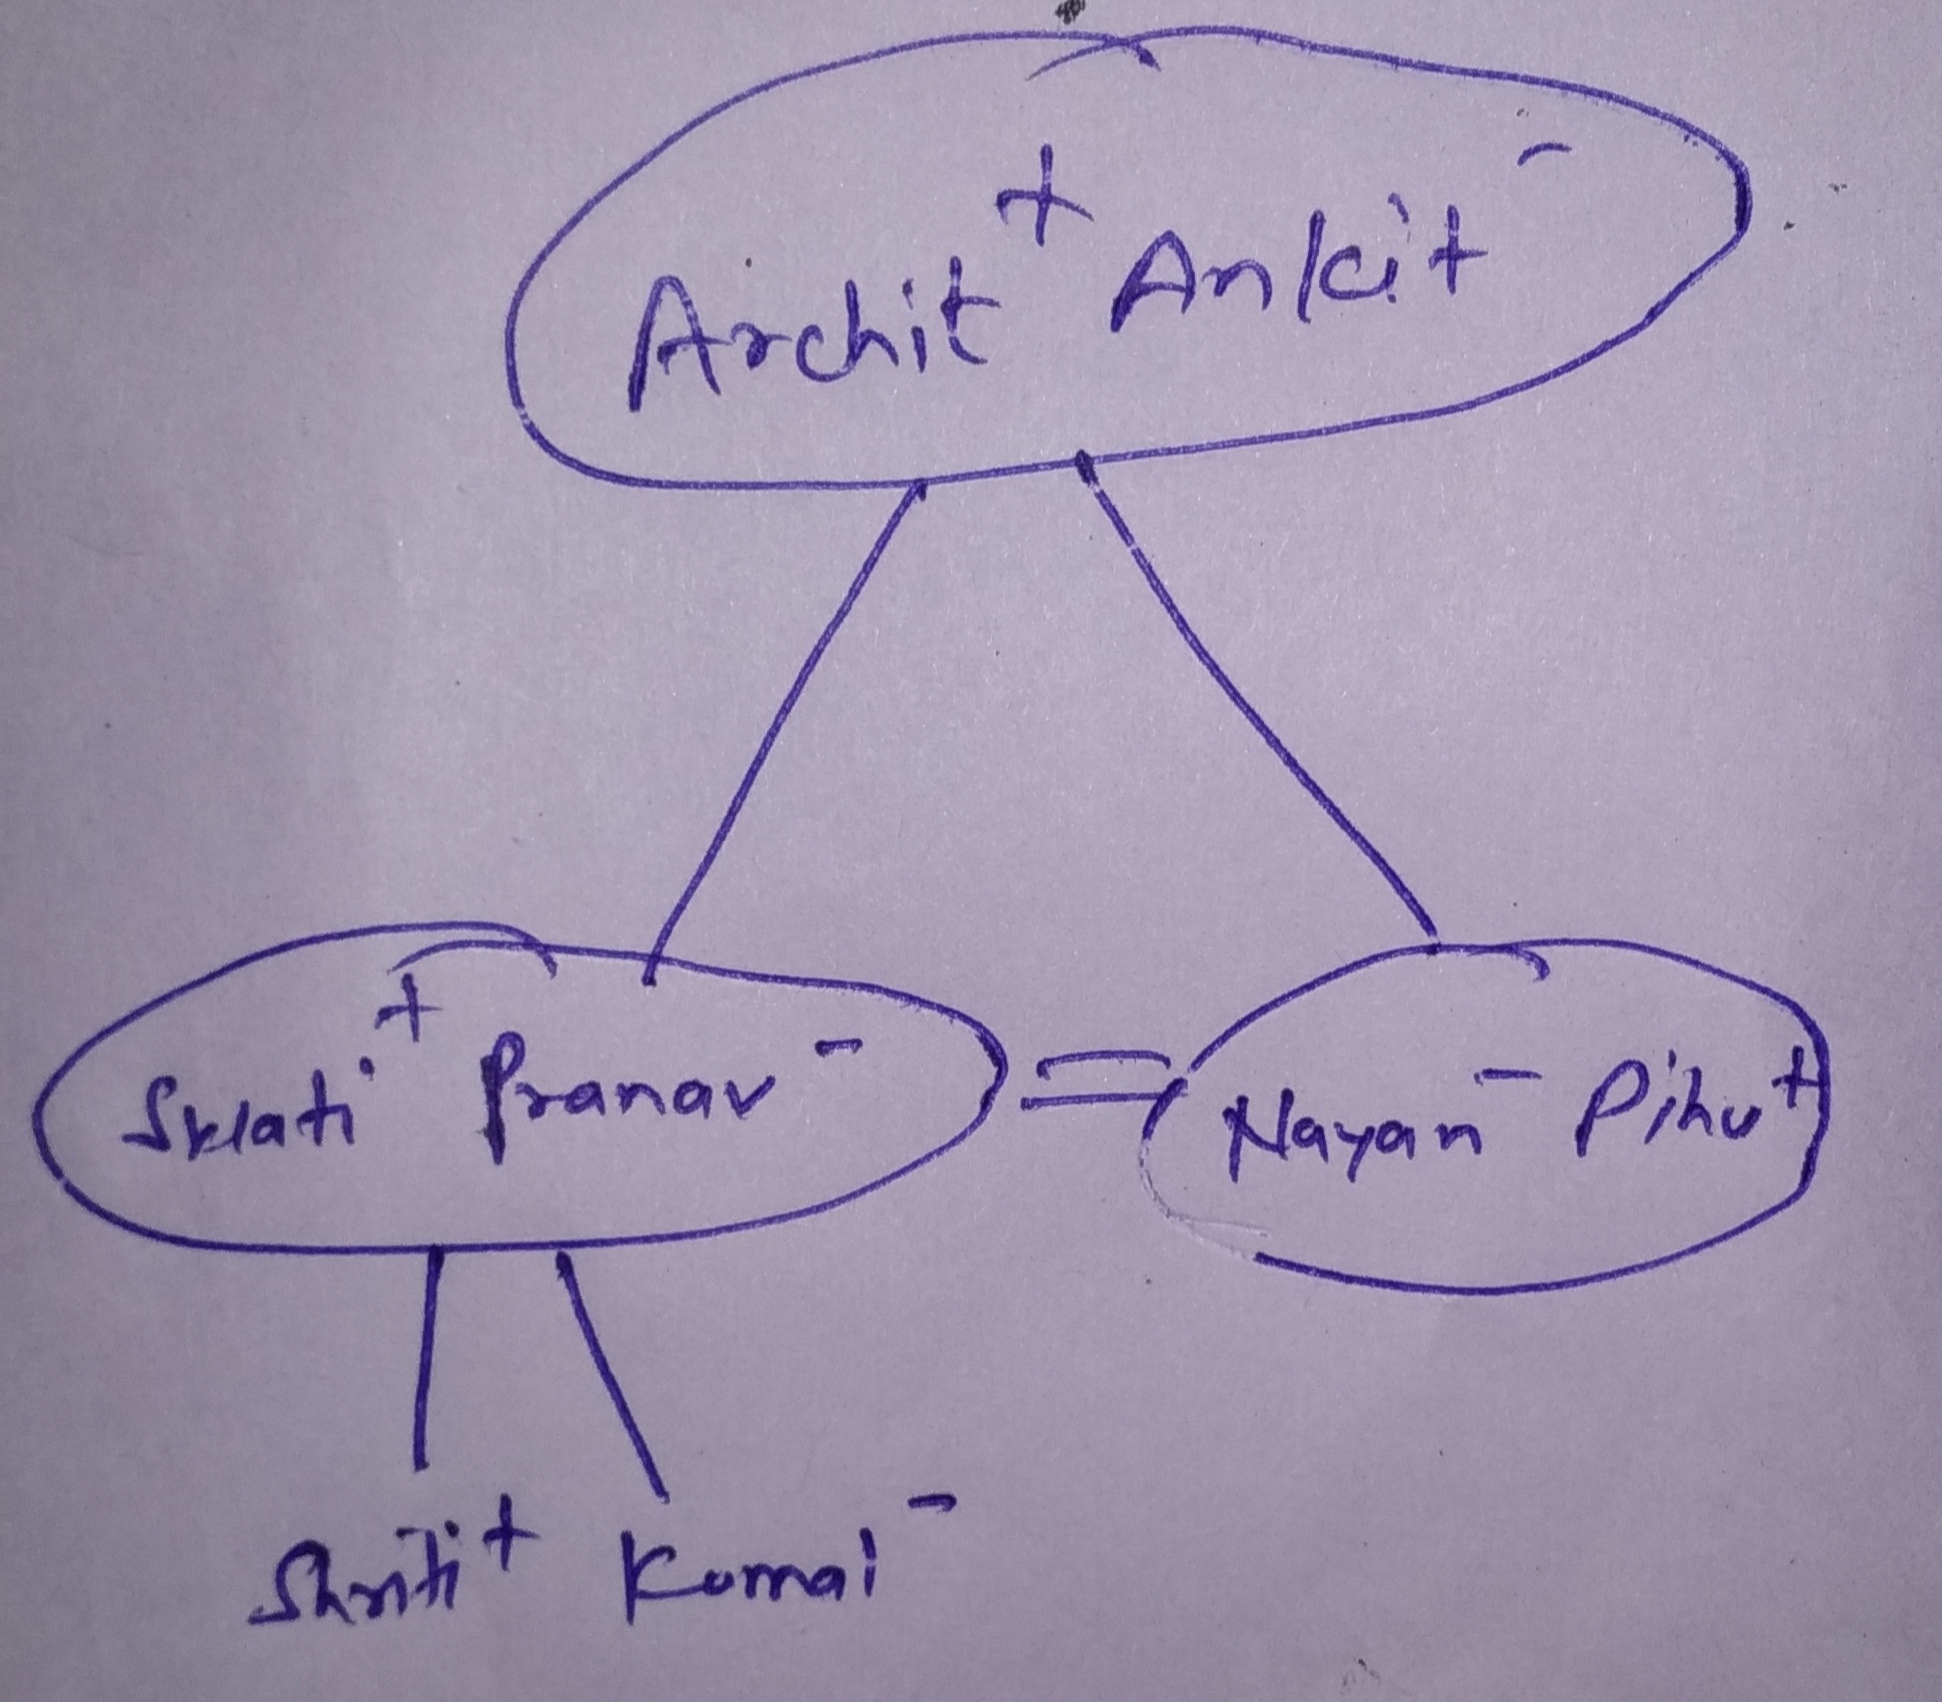 Archit + Ankit -
Swati + Pranav - = Nayan - Pihu +
Shriti + Komal -